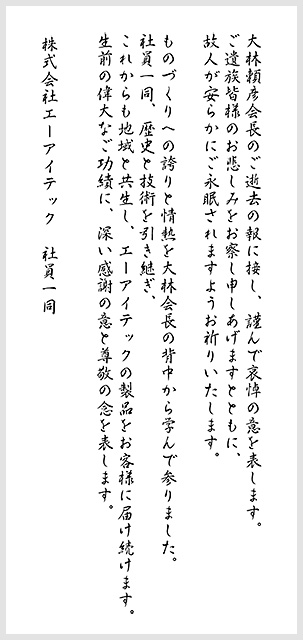 大林頼彦会長のご逝去の報に接し、謹んで哀悼の意を表します。
ご遺族皆様のお悲しみをお察し申しあげますとともに、
故人が安らかにご永眠されますようお祈りいたします。
ものづくりへの誇りと情熱を大林会長の背中から学んで参りました。
社員一同、歴史と技術を引き継ぎ、
これからも地域と共生し、エーアイテックの製品をお客様に届け続けます。
生前の偉大なご功績に、深い感謝の意と尊敬の念を表します。
株式会社エーアイテック　社員一同